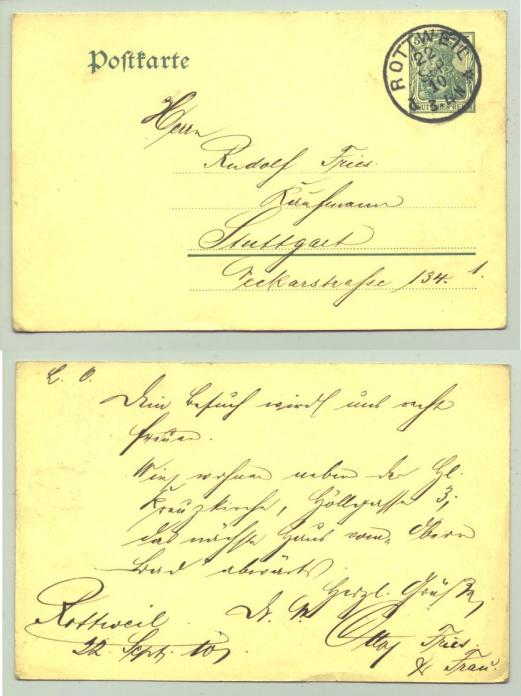 Postkarte
ROTTWEIL
22
10
DEUTSCHES REICH
Herrn
Rudolf Fries.
Kaufmann
Stuttgart
Neckarstrasse 134. 1.
L. O.
Dein Besuch wird uns recht
freuen.
Wir wohnen neben der Hl.
Kreuzkirche, Höllgasse 3,
das nächste Haus vom Obern
Bad abwärts.
Herzl. Grüße
Rottweil
22. Sept. 10
Otto Fries.
& Frau.